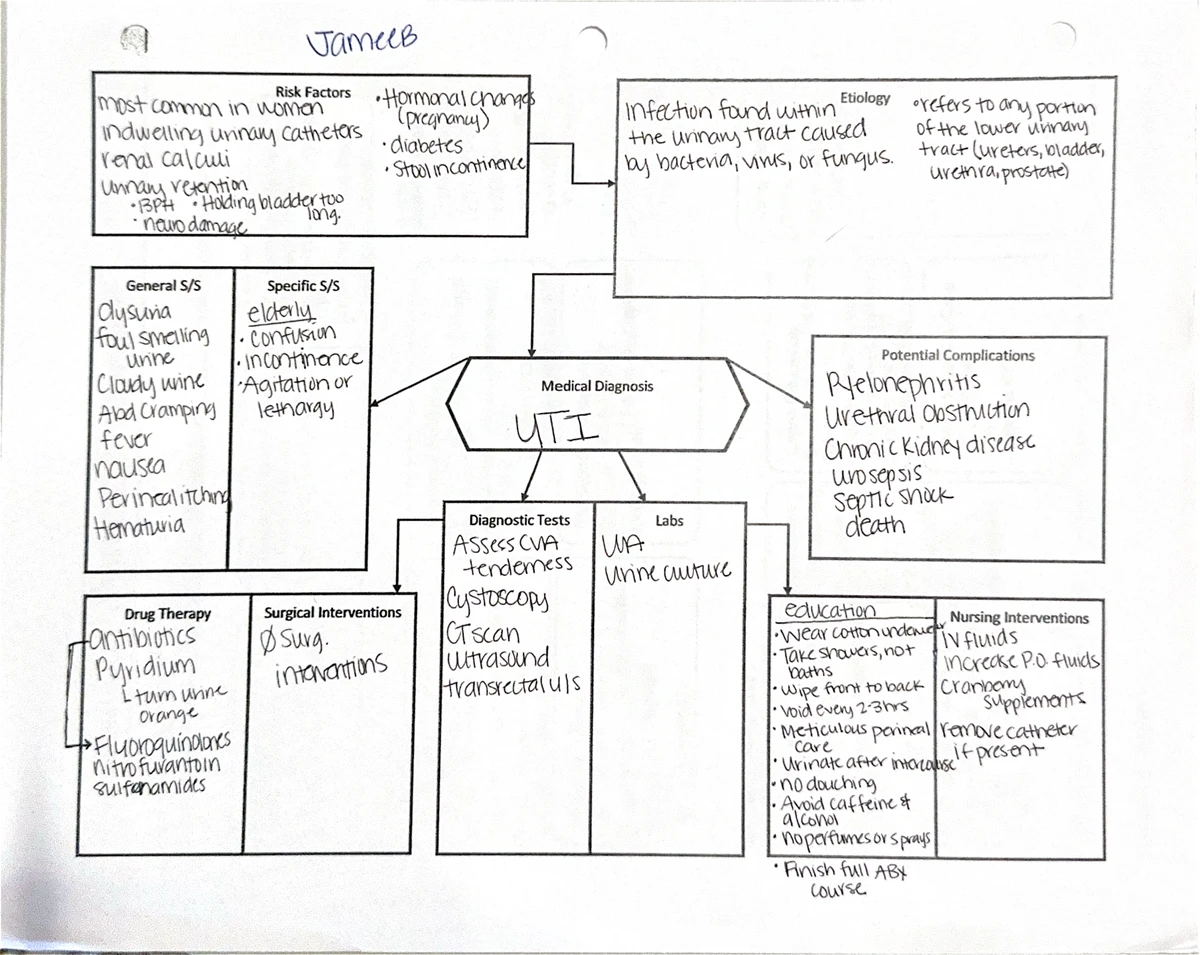 JameeB
Risk Factors
most common in women
indwelling urinary catheters
renal calculi
urinary retention
•BPH •Holding bladder too
long.
•neuro damage
•Hormonal changes
(pregnancy)
•diabetes
•Stool incontinence
Etiology
Infection found within
the urinary tract caused
by bacteria, virus, or fungus.
•refers to any portion
of the lower urinary
tract (ureters, bladder,
urethra, prostate)
General S/S
dysuria
foul smelling
urine
Cloudy urine
Abd cramping
fever
nausea
Perineal itching
Hematuria
Specific S/S
elderly
•confusion
•incontinence
•Agitation or
lethargy
Medical Diagnosis
UTI
Potential Complications
Pyelonephritis
Urethral obstruction
Chronic kidney disease
urosepsis
Septic shock
death
Drug Therapy
antibiotics
Pyridium
turn urine
orange
Fluoroquinolones
nitrofurantoin
sulfonamides
Surgical Interventions
Ø Surg.
interventions
Diagnostic Tests
Assess CVA
tenderness
Cystoscopy
CT scan
Ultrasound
transrectal u/s
Labs
UA
Urine culture
education
•Wear cotton underwear
•Take showers, not
baths
•Wipe front to back
•Void every 2-3hrs
•Meticulous perineal
care
•Urinate after intercourse
•no douching
•Avoid caffeine &
alcohol
•no perfumes or sprays
•Finish full ABX
course
Nursing Interventions
IV fluids
increase P.O. fluids
Cranberry
supplements
remove catheter
if present